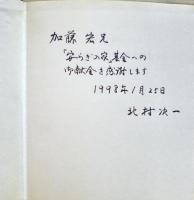 加藤 宏兄
「安らぎの家」基金への
御献金を感謝します
1998年1月25日
北村次一